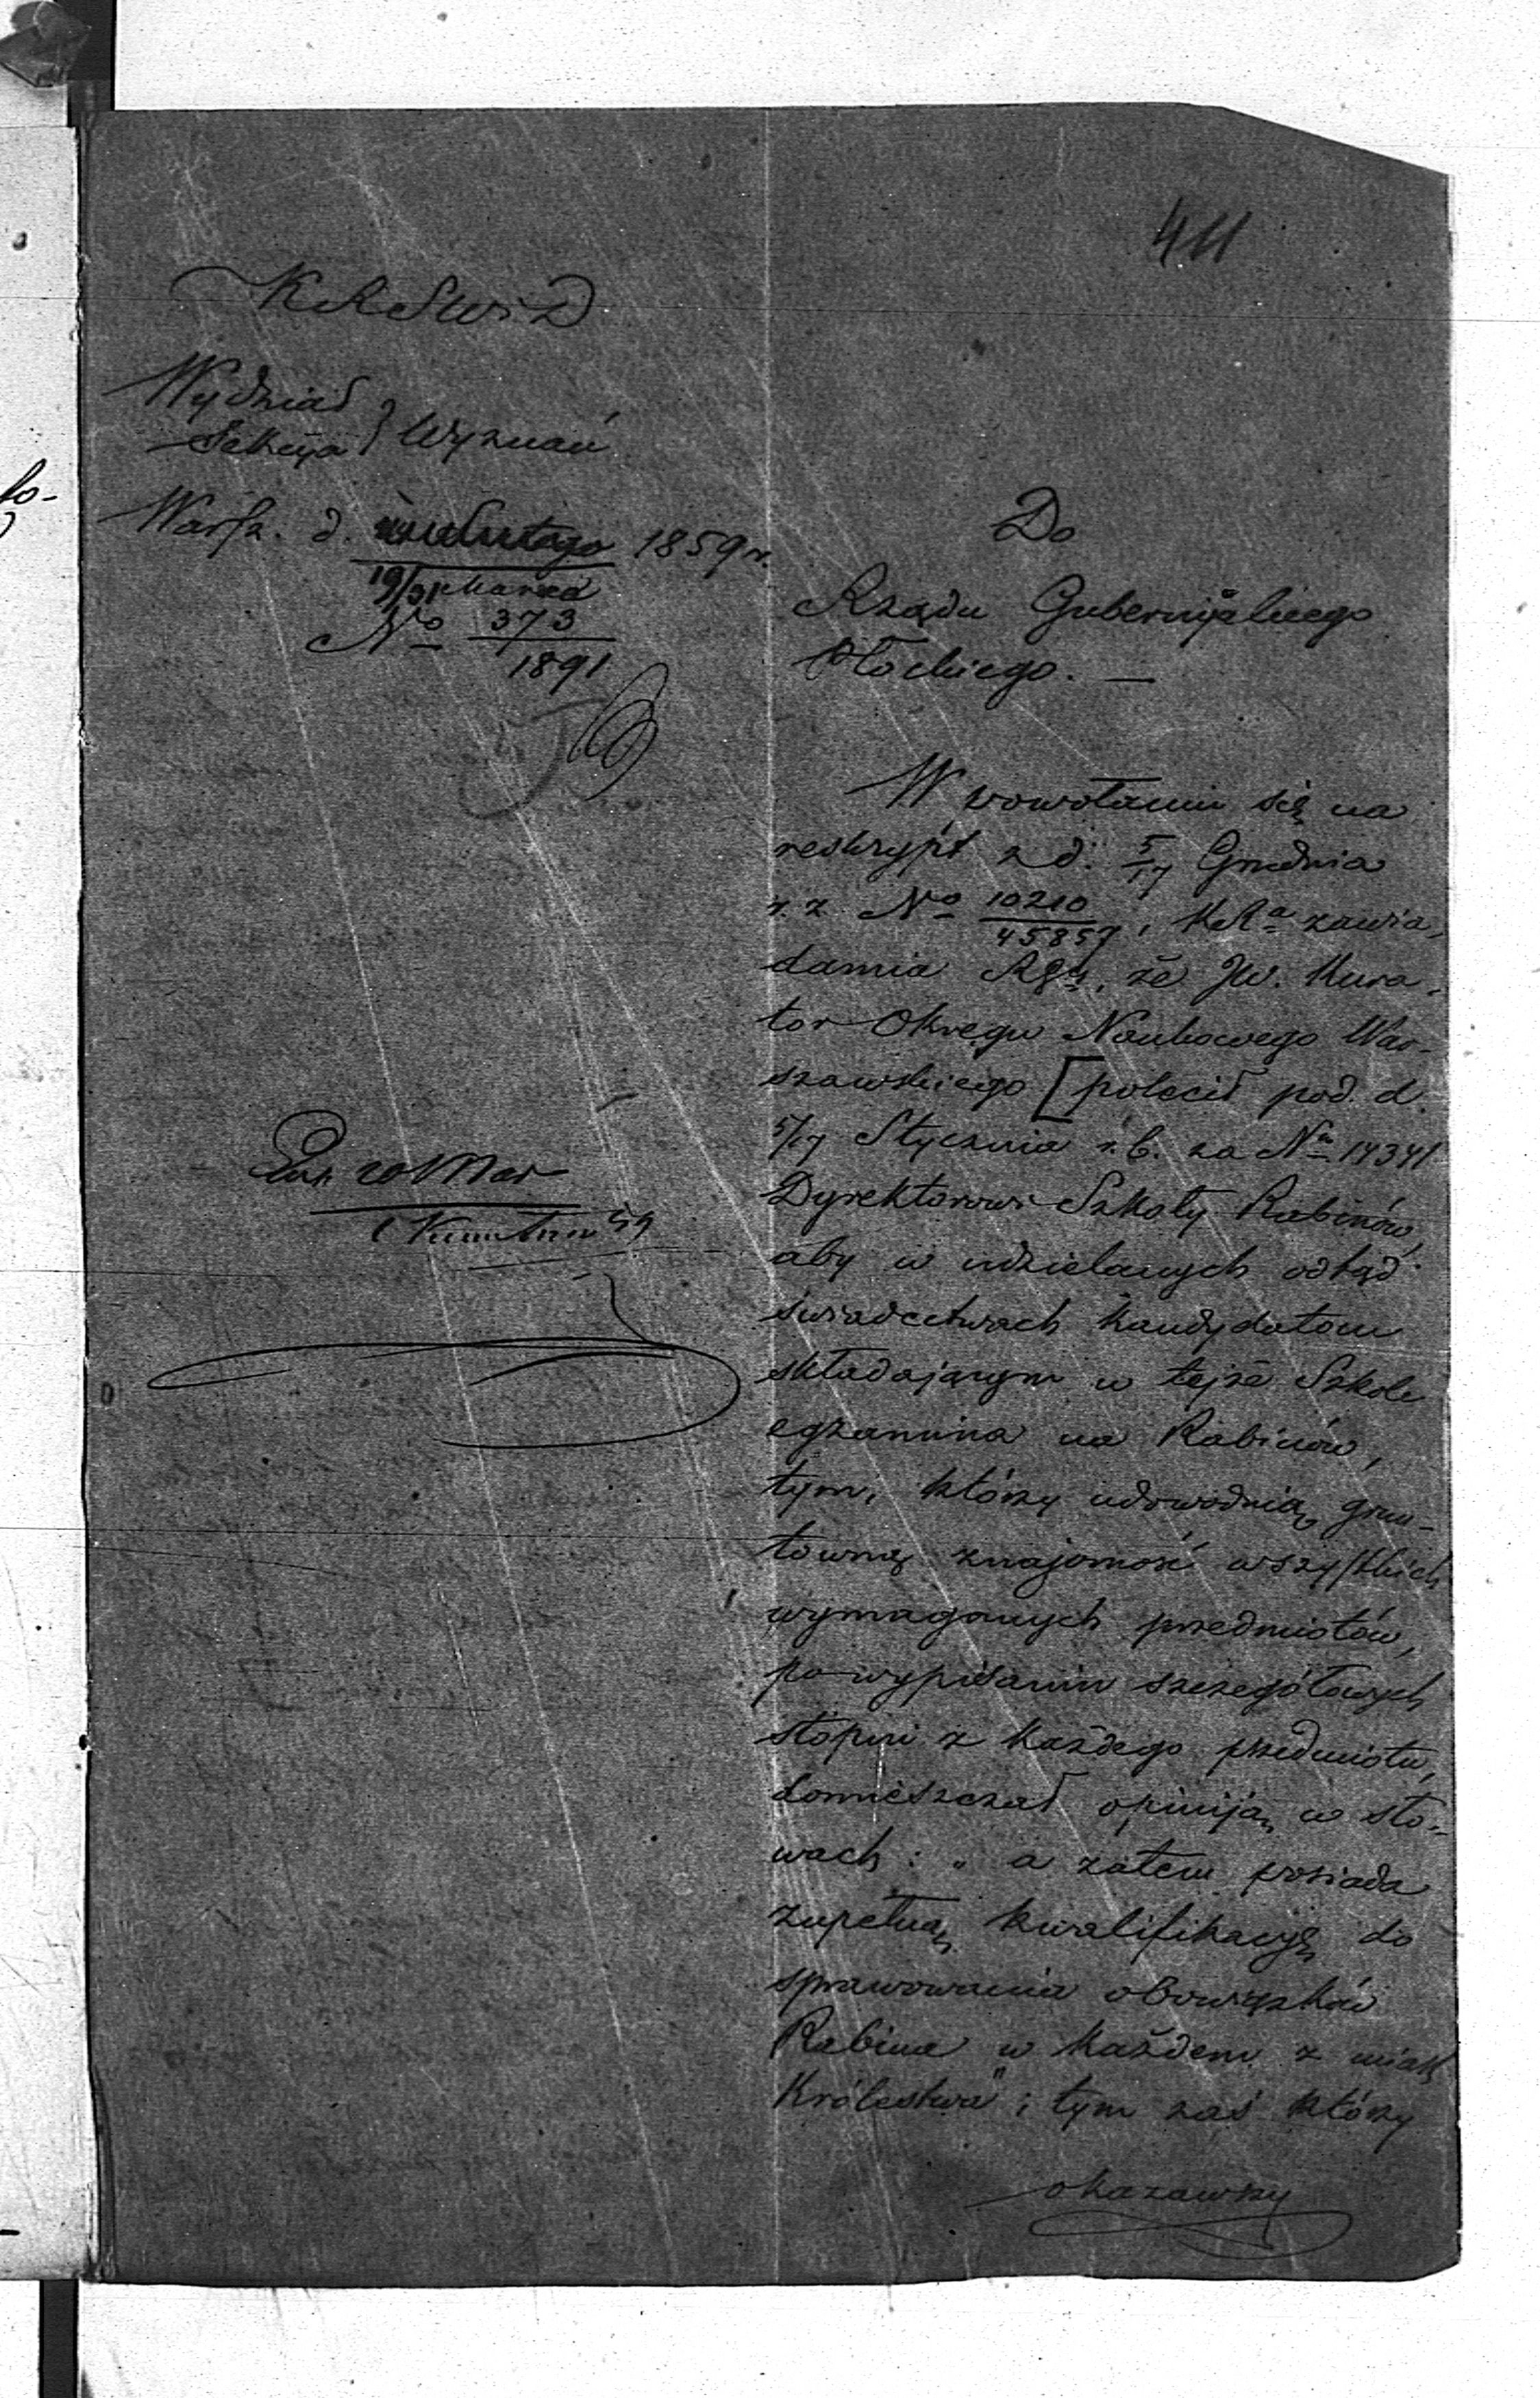 411
KRSWiD
Wydział
Sekcya } Wyznań
Warsz. d. Lutego 1859 r.
19/31 Marca
No 373
1891
Do
Rządu Gubernijalnego
Płockiego. —
W powołaniu się na
reskrypt z d. 5/17 Grudnia
r. z. No 10210/45857, KRa zawia-
damia RGu, że JW. Kura-
tor Okręgu Naukowego War-
szawskiego [polecił pod d.
5/17 Stycznia r. b. za No 14341
Dyrektorowi Szkoły Rabinów,
aby w udzielanych odtąd
świadectwach kandydatom
składającym w tejże Szkole
egzamina na Rabinów,
tym, którzy udowodnią grun-
towną znajomość wszystkich
wymaganych przedmiotów,
po wypisaniu szczegółowych
stopni z każdego przedmiotu,
domieszczał opiniją w sło-
wach: „a zatem posiada
zupełną kwalifikacyę do
sprawowania obowiązków
Rabina w każdem z miast
Królestwa"; tym zaś którzy
okazawszy